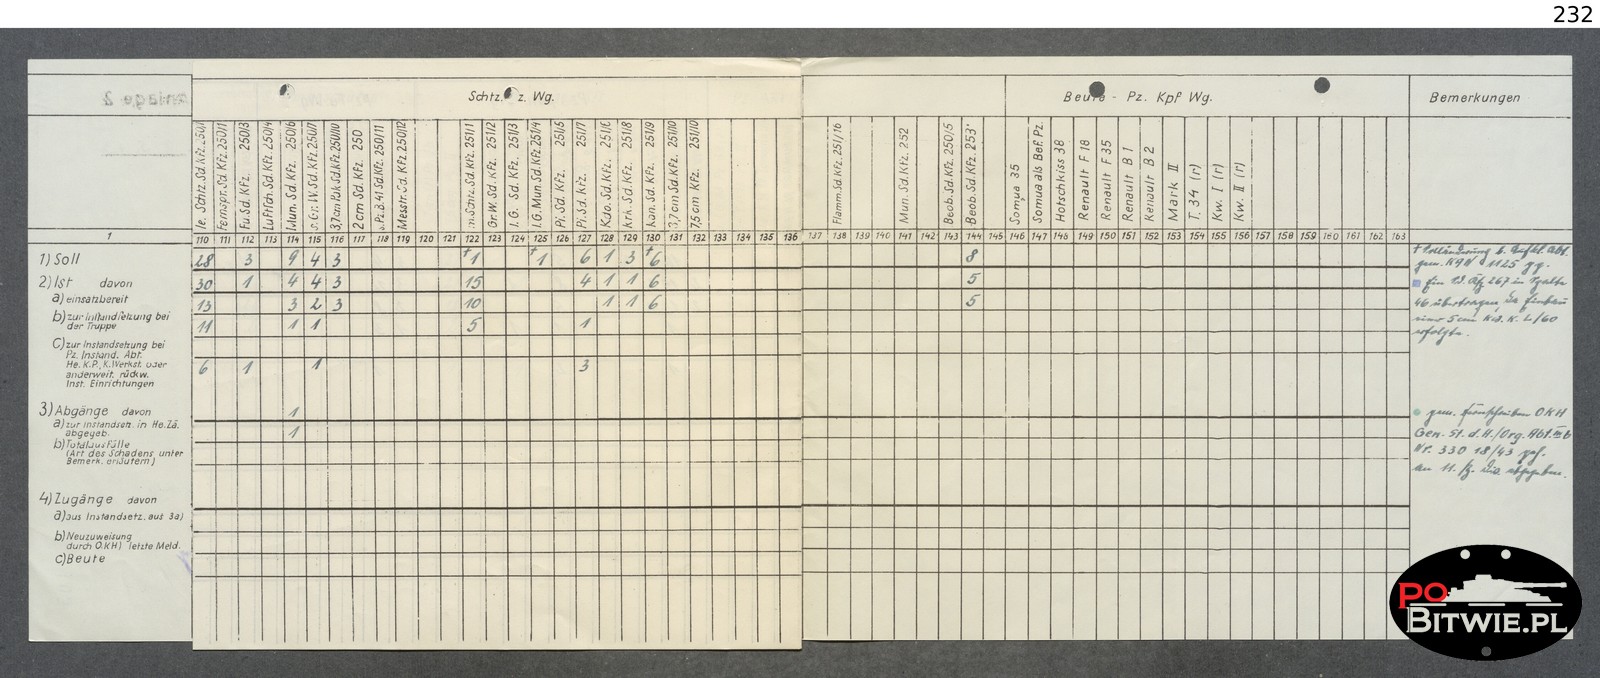 232
Anlage 2
Schtz. Pz. Wg.
Beute - Pz. Kpf Wg.
Bemerkungen
le. Schtz. Sd. Kfz. 250/1
Fernspr. Sd. Kfz. 250/1
Fu. Sd. Kfz. 250/3
Luftsch. Sd. Kfz. 250/4
Mun. Sd. Kfz. 250/6
s. Gr. W. Sd. Kfz. 250/7
3,7cm Pak Sd. Kfz. 250/10
2 cm Sd. Kfz. 250
s. Pz. B. 41 Sd. Kfz. 250/11
Messtr. Sd. Kfz. 250/12
m. Schtz. Sd. Kfz. 251/1
Gr. W. Sd. Kfz. 251/2
I. G. Sd. Kfz. 251/3
I. G. Mun. Sd. Kfz. 251/4
Pi. Sd. Kfz. 251/5
Pi. Sd. Kfz. 251/7
Kdo. Sd. Kfz. 251/6
Krk. Sd. Kfz. 251/8
Kan. Sd. Kfz. 251/9
3,7cm Sd. Kfz. 251/10
7,5 cm Kfz. 251/10
Flamm. Sd. Kfz. 251/16
Mun. Sd. Kfz. 252
Beob. Sd. Kfz. 250/5
Beob. Sd. Kfz. 253
Somua 35
Somua als Bef. Pz.
Hotschkiss 38
Renault F 18
Renault F 35
Renault B 1
Renault B 2
Mark II
T. 34 (r)
Kw. I (r)
Kw. II (r)
1 110 111 112 113 114 115 116 117 118 119 120 121 122 123 124 125 126 127 128 129 130 131 132 133 134 135 136 137 138 139 140 141 142 143 144 145 146 147 148 149 150 151 152 153 154 155 156 157 158 159 160 161 162 163
1) Soll 28 3 9 4 3 +1 +1 6 1 3 +6 8
2) Ist davon 30 1 4 4 3 15 4 1 1 6 5
a) einsatzbereit 13 3 2 3 10 1 1 6 5
b) zur Instandsetzung bei
der Truppe 11 1 1 5 1
c) zur Instandsetzung bei
Pz. Instand. Abt.
He. K.P., K. Werkst. oder 6 1 1 3
anderweit. rückw.
Inst. Einrichtungen
3) Abgänge davon 1
a) zur Instandsetz. in He. Zä.
abgegeb. 1
b) Totalausfälle
(Art des Schadens unter
Bemerk. erläutern)
4) Zugänge davon
a) aus Instandsetz. aus 3a)
b) Neuzuweisung
durch OKH) letzte Meld.
c) Beute
b. Aufkl. Abt.
gem. K.A.N. 1125 gg.
Ein Sd. Kfz 267 in Spalte
46 übertragen, da Einbau
einer 5 cm Kw. K. L/60
erfolgte.
gem. Fernschreiben OKH
Gen. St. d. H./Org. Abt. III b
Nr. 330 18/43
an 11. Pz. Div. abgegeben.
PO
BITWIE.PL